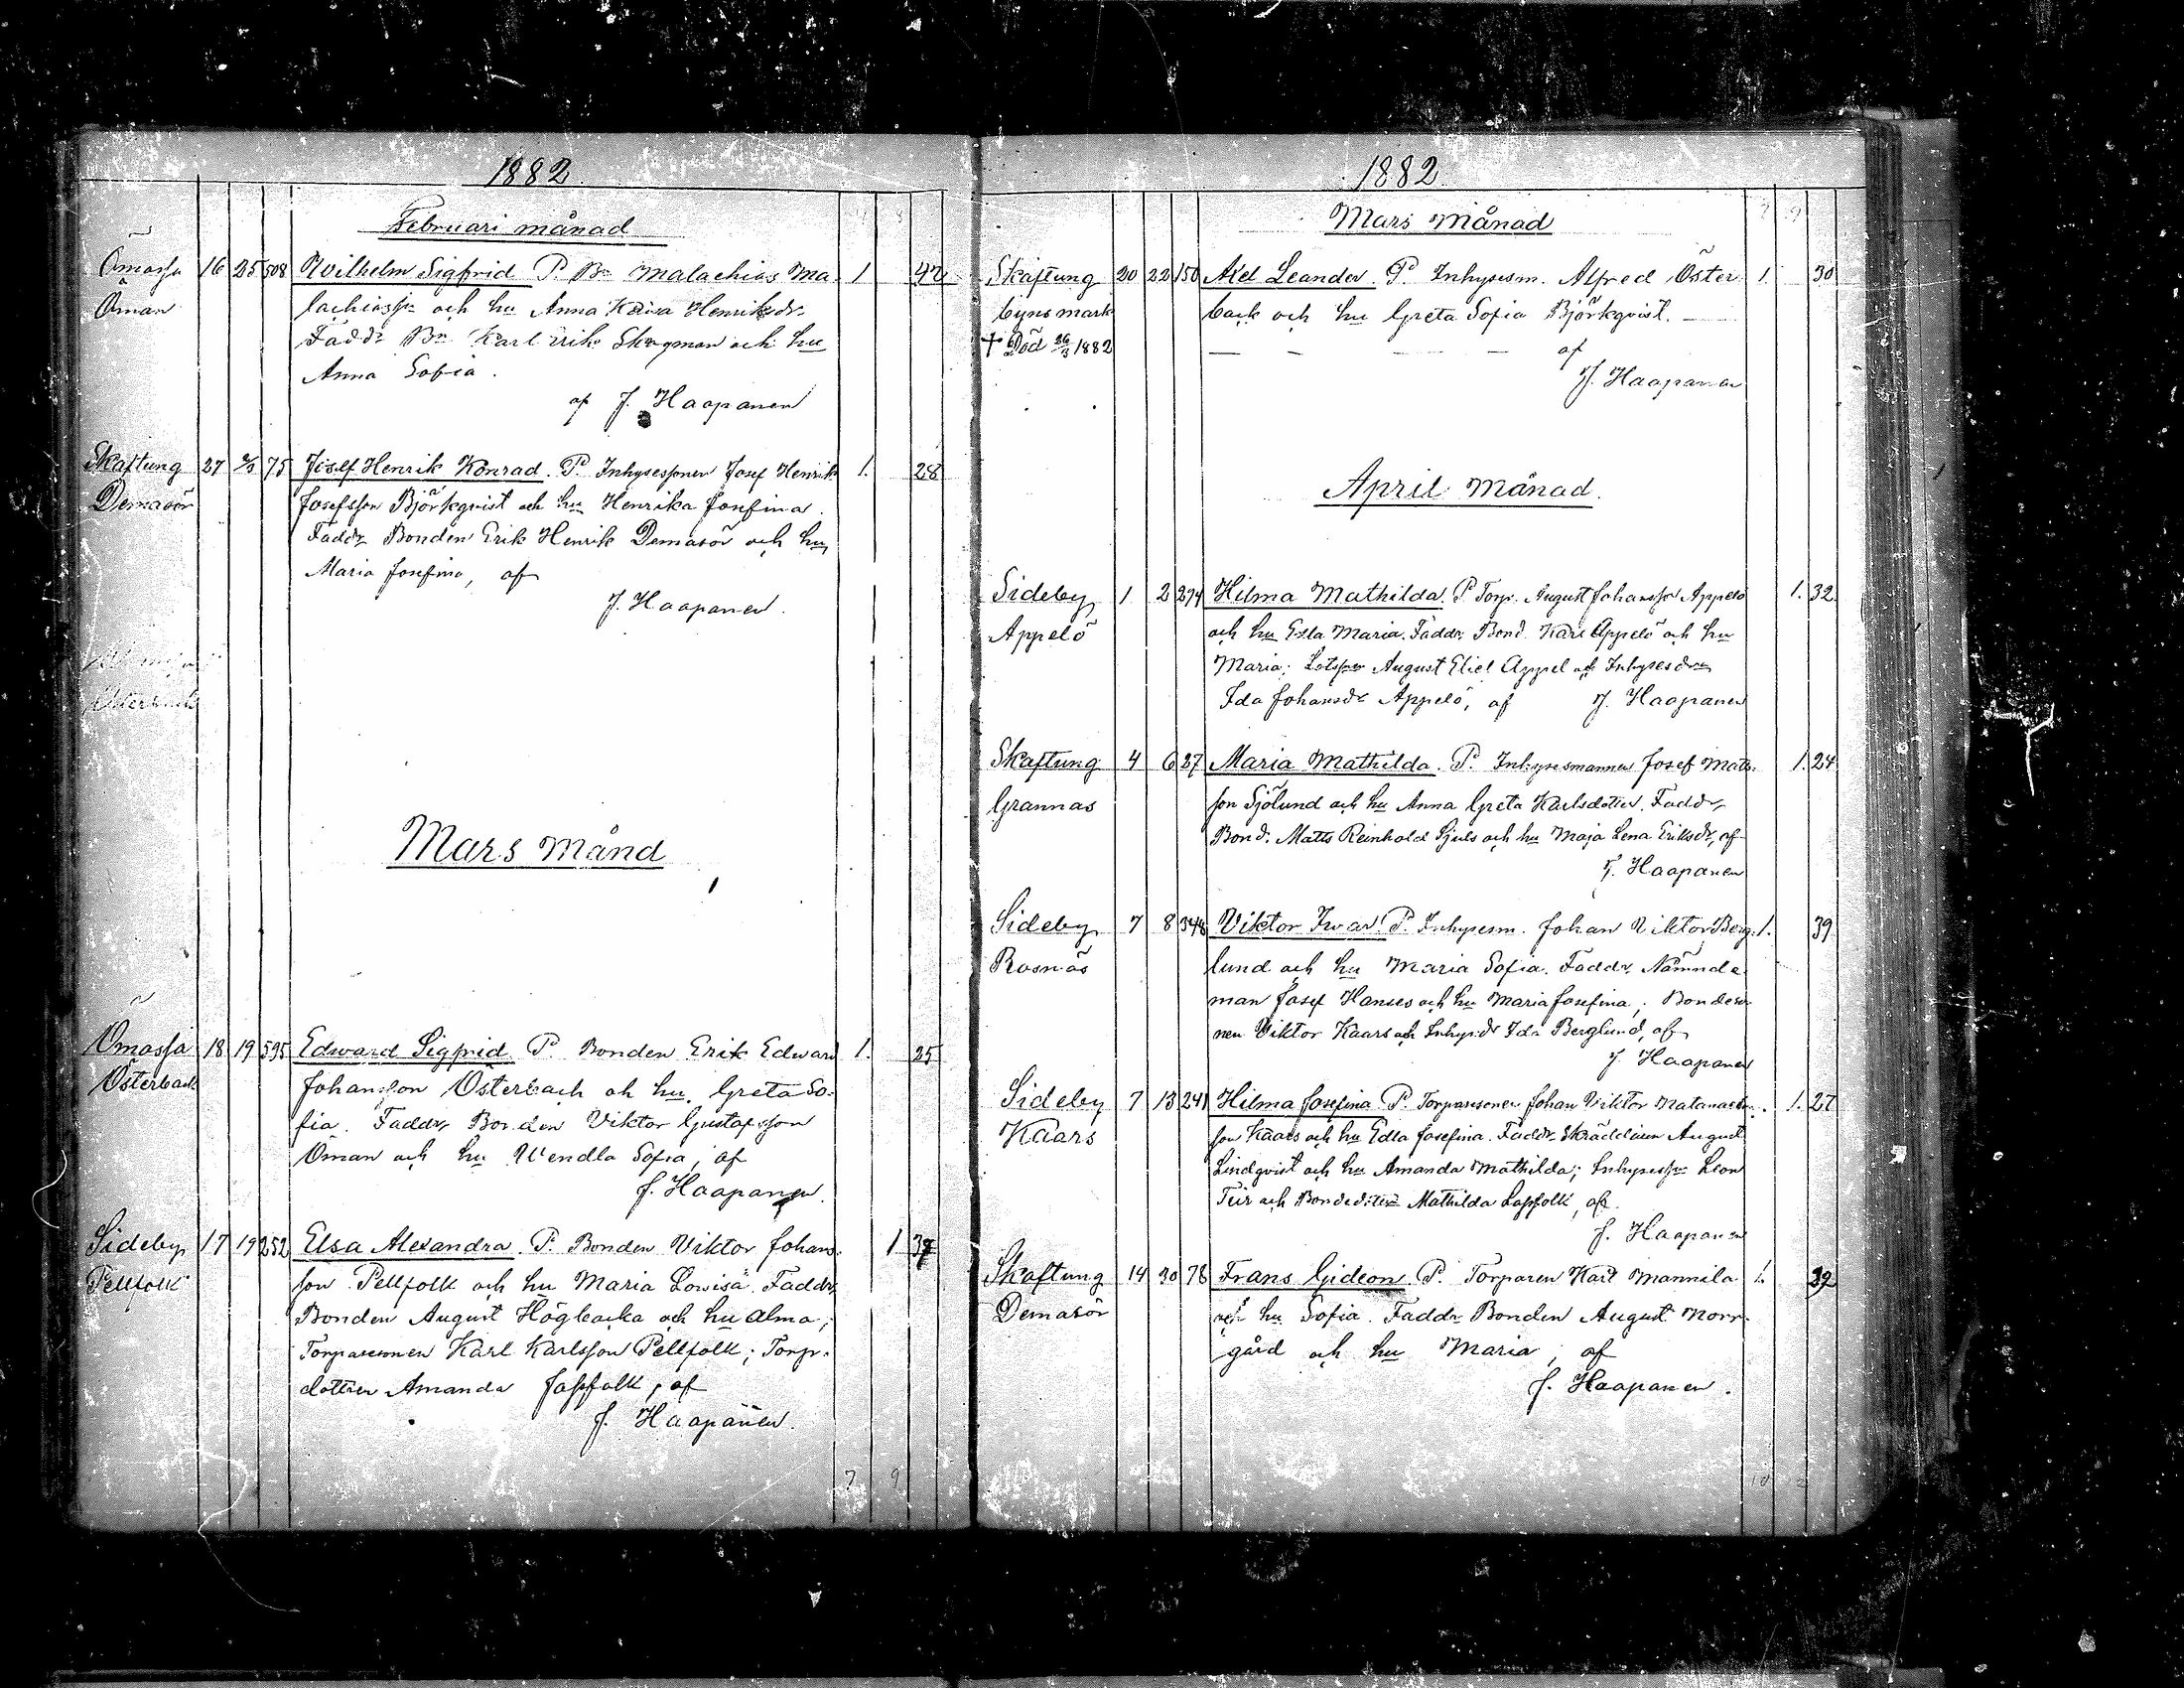 1882
Februari månad
Ömossa 16 25 508 Wilhelm Sigfrid P. Bn Malachias Ma- 1 42
Öman lachiasson och hu Anna Kaisa Henriksdr.
Faddr Bn Karl Erik Skogman och hu
Anna Sofia.
af J. Haapanen
Skaftung 27 2/3 75 Josef Henrik Konrad. P. Inhysessonen Josef Henrik 1. 28
Demasör Josefsson Björkqvist och hu Henrika Josefina.
Faddr Bonden Erik Henrik Demasör och hu
Maria Josefina, af
J. Haapanen.
Mars månd
Ömossa 18 19 595 Edward Sigfrid P. Bonden Erik Edward 1. 25
Österback Johansson Österback oh hu. Greta So-
fia. Faddr Bonden Viktor Gustafsson
Öman och hu Wendla Sofia, af
J. Haapanen.
Sideby 17 19 252 Elsa Alexandra. P. Bonden Viktor Johans- 1 37
Pellfolk son Pellfolk och hu Maria Lowisa. Faddr
Bonden August Högbacka och hu Alma;
Torparesonen Karl Karlsson Pellfolk; Torp.
dottren Amanda Jossfolk, af
J. Haapanen.
7 9
1882
Mars Månad
Skaftung 20 22 150 Axel Leander. P. Inhysesm. Alfred Öster- 1. 30
bynsmark back och hu Greta Sofia Björkqvist.
† Död 26/3 1882 af
J. Haapanen
April månad.
Sideby 1 2 274 Hilma Mathilda. P. Torp. August Johansson Appelö 1. 32
Appelö och hu Edla Maria. Faddr. Bond. Karl Appelö och hu
Maria; Lotsson August Eliel Appel och Inhysesdrn
Ida Johansdr Appelö, af J. Haapanen
Skaftung 4 6 27 Maria Mathilda. P. Inhysesmannen Josef Mats- 1. 24
Grannas son Sjölund och hu Anna Greta Karlsdotter. Faddr
Bond. Matts Reinhold Sjuls och hu Maja Lena Eriksdr, af
J. Haapanen
Sideby 7 8 348 Viktor Iwar. P. Inhysesm. Johan Viktor Berg- 1. 39
Rosnäs lund och hu Maria Sofia. Faddr. Nämnde-
man Josef Hanses och hu Maria Josefina; Bondeso-
nen Viktor Kaars och Inhys.dr Ida Berglund, af
J. Haapanen
Sideby 7 13 241 Hilma Josefina P. Torparesonen Johan Viktor Matanaels- 1. 27
Kaars son Kaars och hu Edla Josefina. Faddr. Skräddaren August
Lindqvist och hu Amanda Mathilda; Inhysesson Leon
Teir och Bondedottern Mathilda Lassfolk, af.
J. Haapanen
Skaftung 14 30 78 Frans Gideon P. Torparen Karl Mannila 1. 32
Demasör och hu Sofia. Faddr Bonden August Norr-
gård och hu Maria, af
J. Haapanen.